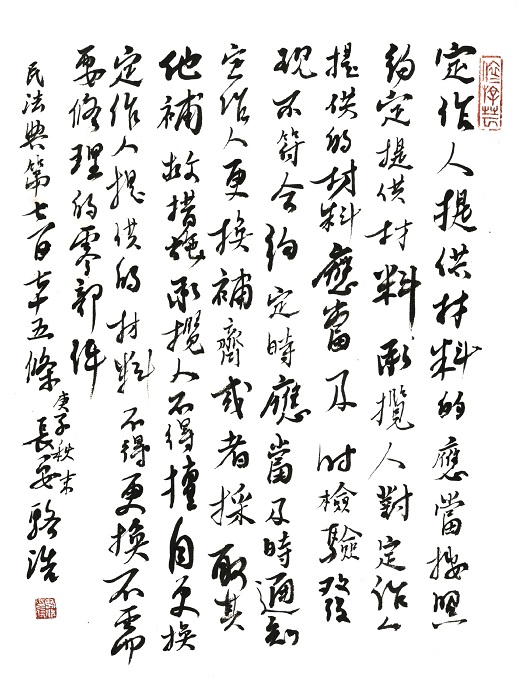 定作人提供材料的應當按照
約定提供材料承攬人對定作人
提供的材料應當及时檢驗發
现不符合約定時應當及時通知
定作人更换補齊或者採取其
他補救措施承攬人不得擅自更换
定作人提供的材料不得更换不需
要修理的零部件
民法典第七百七十五條
庚子秋末
長安駱浩